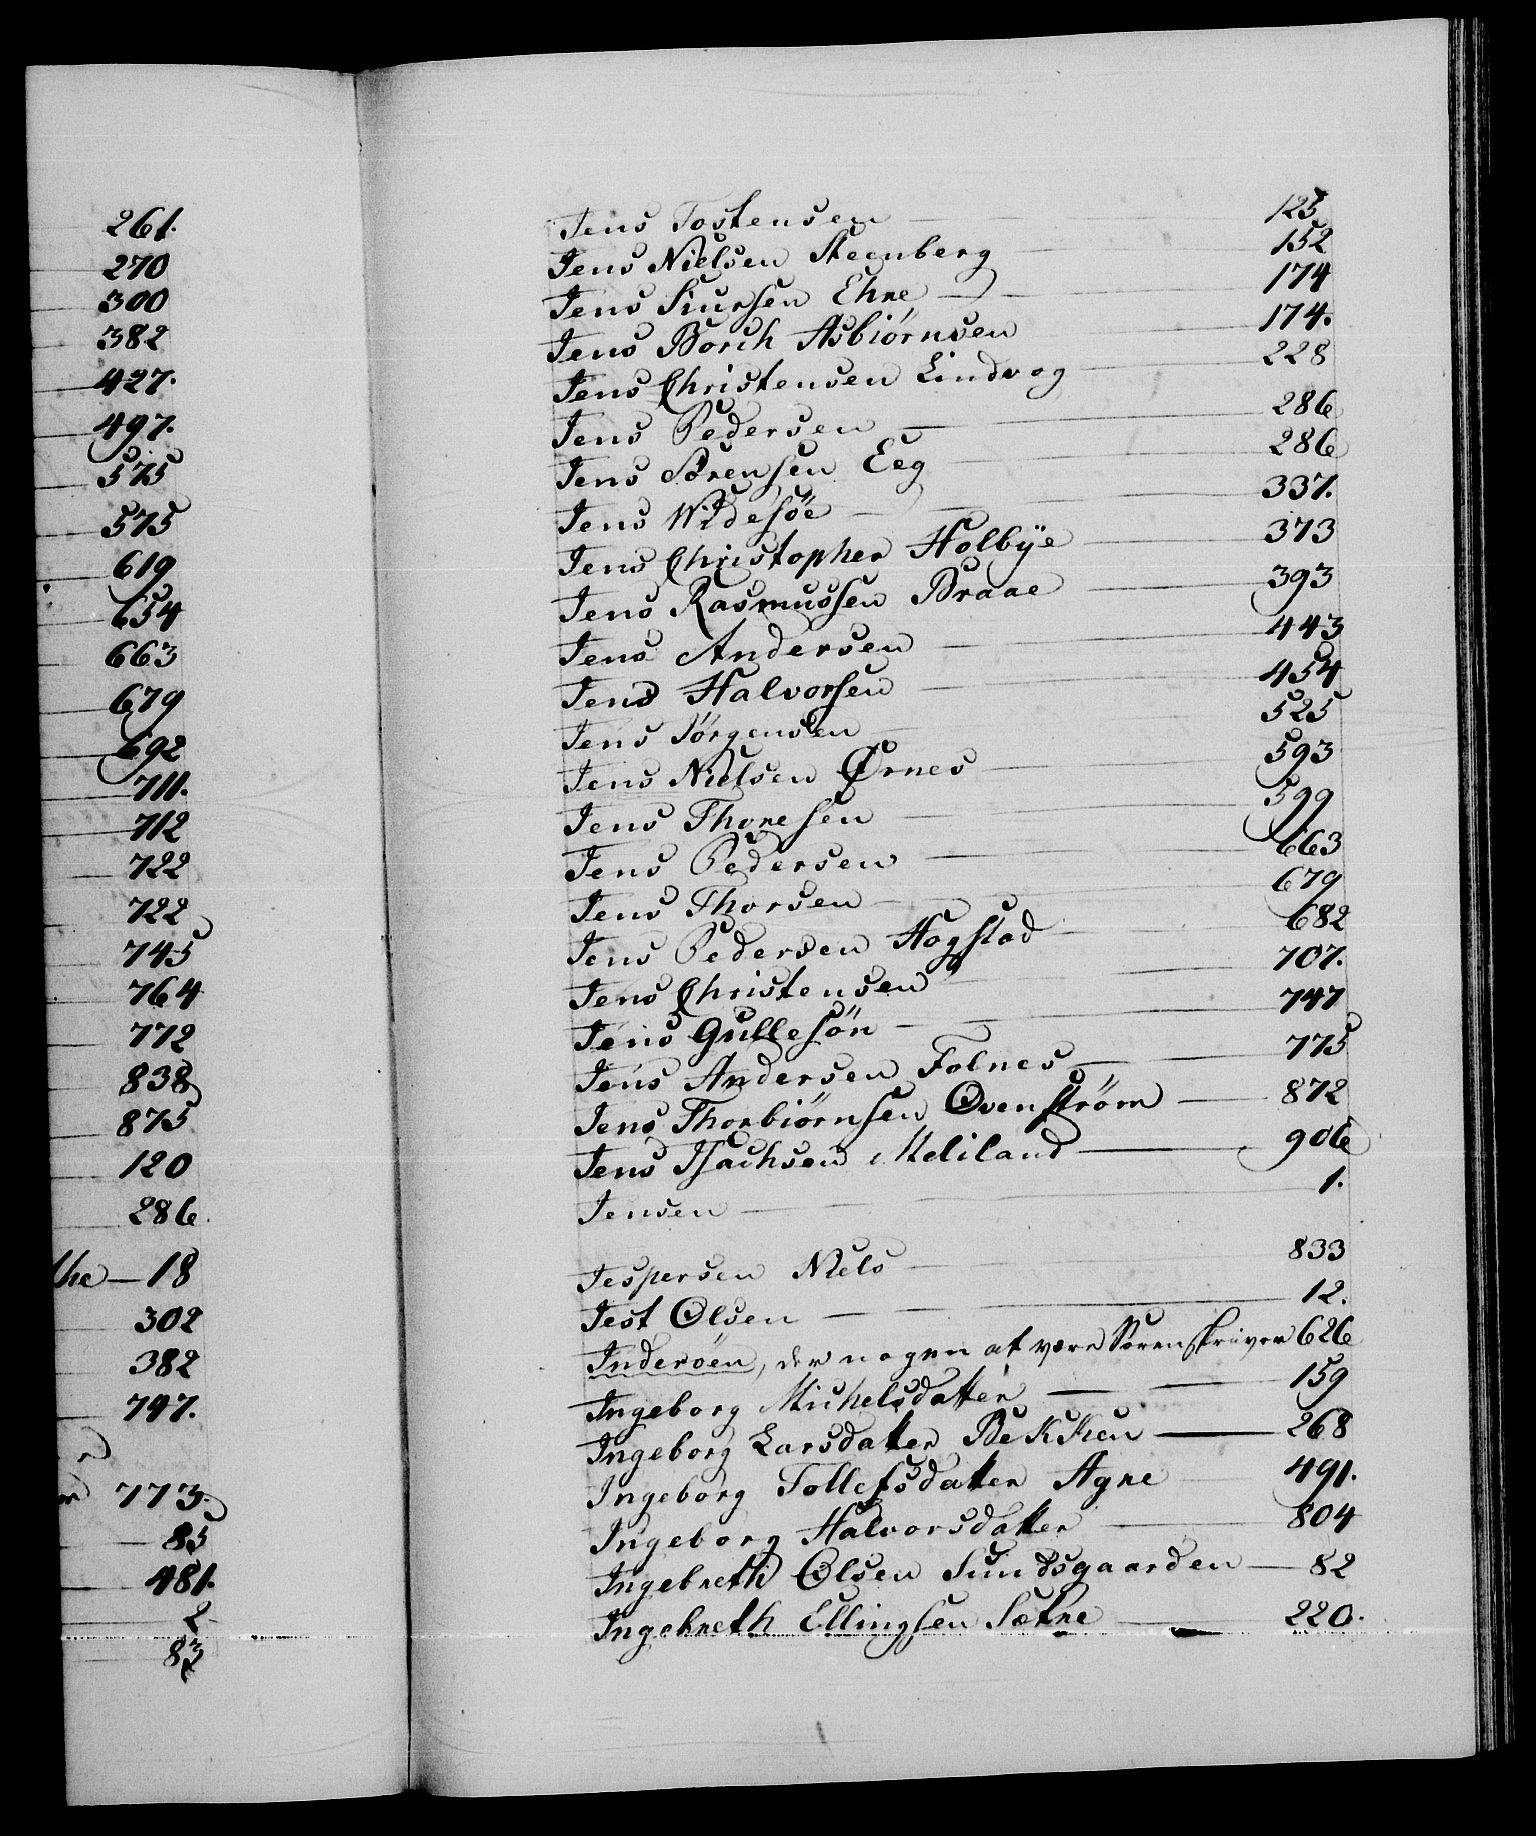 261.
270
300
382
427.
497.
575
575
619
654
663
679
692
711.
712
722
722
745
764
772
838
875
120
286.
the — 18
302
382
797.
773.
85
481.
2
83
Jens Tostensen — 125
Jens Nielsen Steenberg — 152
Jens Siursen Ehre — 174
Jens Borch Asbiørnsen — 174.
Jens Christensen Lindvog — 228
Jens Pedersen — 286
Jens Sørensen Eeg — 286
Jens Widesøe — 337.
Jens Christopher Holbÿe — 373
Jens Rasmussen Braae — 393
Jens Andersen — 443
Jens Halvorsen — 454
Jens Jörgensen — 525
Jens Nielsen Ørnes — 593
Jens Thoresen — 599
Jens Pedersen — 663
Jens Thorsen — 679
Jens Pedersen Hogstad — 682
Jens Christensen — 707.
Jens Gullesön — 747
Jens Andersen Folnes — 775
Jens Thorbiørnsen Ovenstrøm — 872
Jens Isachsen Meliland — 906
Jensen — 1.
Jespersen Niels — 833
Jest Olsen — 12.
Inderöen, den nogen at være Sorenskriver 626
Ingeborg Michelsdatter — 159
Ingeborg Larsdatter Bekken — 268
Ingeborg Tollefsdatter Agne — 491.
Ingeborg Halvorsdatter — 804
Ingebreth Olsen Sundsgaarden — 82
Ingebreth Ellingsen Sætre — 220.